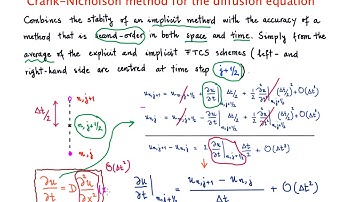 Crank-Nicholson method for the diffusion equation
Combines the stabity of an implicit method with the accuracy of a
method that is second-order in both space and time. Simply from the
average of the explicit and implicit FTCS schemes (left- and
right-hand side are centred at time step j+1/2)
n,j+1
Δt/2
n,j+1/2
n,j
u_{n,j+1} = u_{n,j+1/2} + ∂u/∂t|_{n,j+1/2} Δt/2 + 1/2 ∂²u/∂t²|_{n,j+1/2} (Δt/2)² + O(Δt³)
u_{n,j} = u_{n,j+1/2} - ∂u/∂t|_{n,j+1/2} Δt/2 + 1/2 ∂²u/∂t²|_{n,j+1/2} (Δt/2)² + O(Δt³)
u_{n,j+1} - u_{n,j} = 2 ∂u/∂t|_{n,j+1/2} Δt/2 + O(Δt³)
∂u/∂t = D ∂²u/∂x²
∂u/∂t|_{n,j+1/2} = (u_{n,j+1} - u_{n,j})/Δt + O(Δt²)